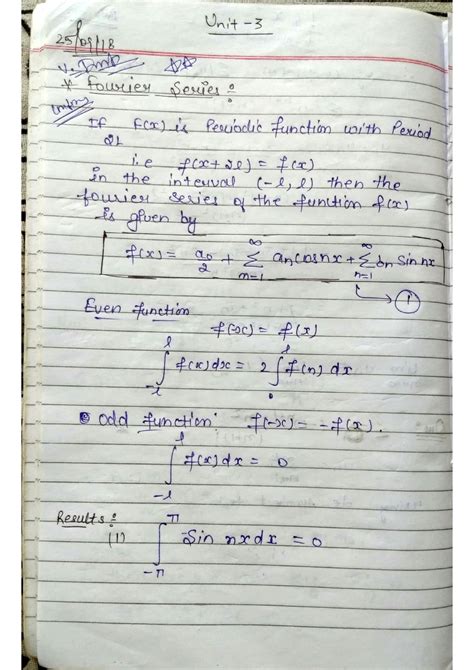 Unit - 3
25/09/18
V. Imp
* Fourier Series :
If F(x) is Periodic function with Period
2l
i.e f(x+2l) = f(x)
in the interval (-l, l) then the
fourier series of the function f(x)
is given by
f(x) = a₀/2 + ∑_{m=1}^{∞} aₙ cos nx + ∑_{n=1}^{∞} bₙ Sin nx
→ ①
Even function
f(-x) = f(x)
∫_{-l}^{l} f(x) dx = 2 ∫_{0}^{l} f(n) dx
odd function f(-x) = -f(x).
∫_{-l}^{l} f(x) dx = 0
Results :
(1) ∫_{-π}^{π} Sin nx dx = 0